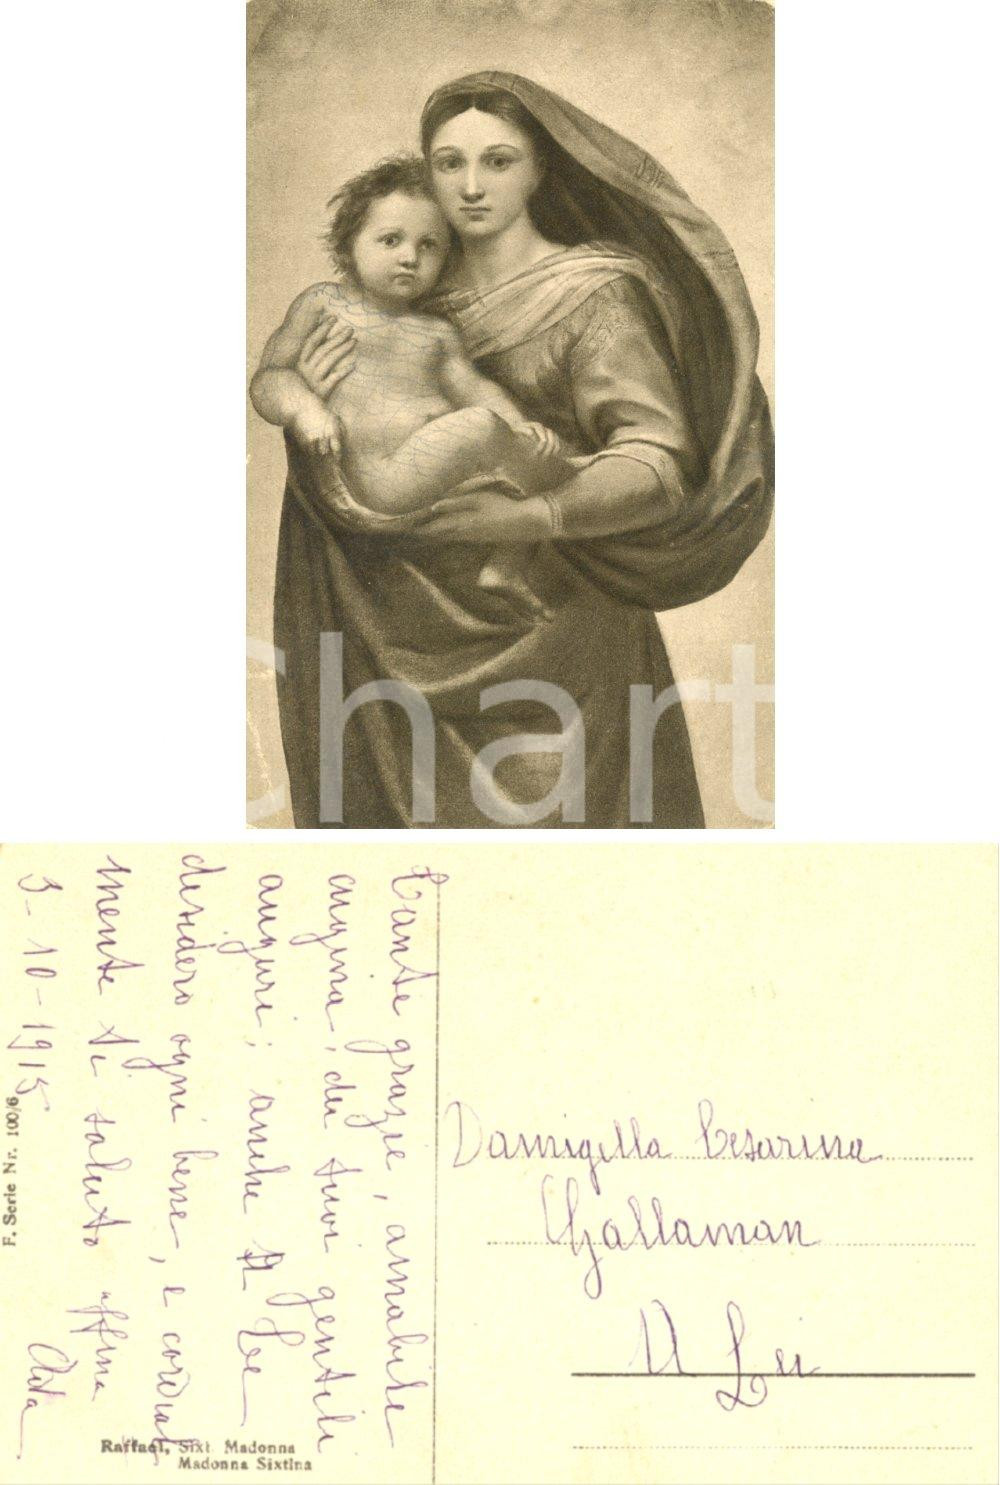 Chart
Tante grazie, amabile
cugina, dei tuoi gentili
auguri; anche a Te
desidero ogni bene, e cordial
mente ti saluto affma
3-10-1915
F. Serie Nr. 100/6
Raffael, Sixt. Madonna
Madonna Sixtina
Damigella Cesarina
Gallaman
A Lei